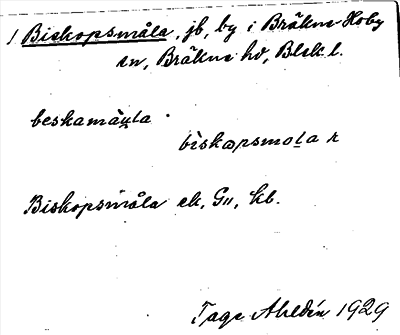 1. Biskopsmåla, jb, by i Bräkne-Hoby
sn, Bräkne hd, Blek. l.
beskamåula
biskopsmola r
Biskopsmåla ek, G11, kb.
Tage Ahldén 1929